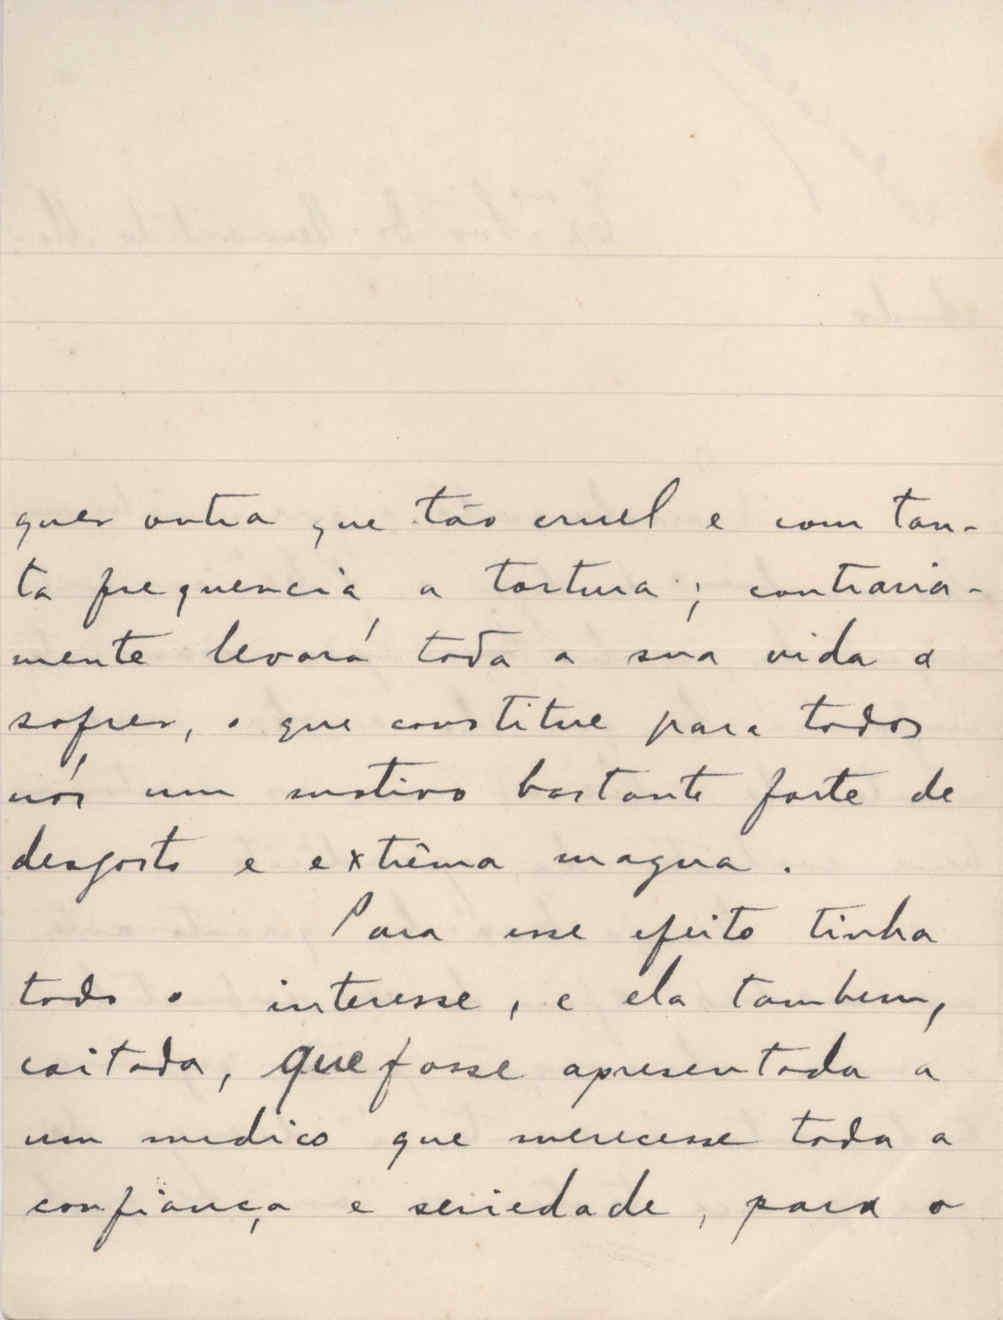 quer outra que tão cruel e com tan-
ta frequencia a tortura; contraria-
mente levará toda a sua vida a
sofrer, o que constitue para todos
nós um motivo bastante forte de
desgosto e extrêma magua.
Para esse efeito tinha
todo o interesse, e ela tambem,
coitada, que fosse apresentada a
um medico que merecesse toda a
confiança e seriedade, para o